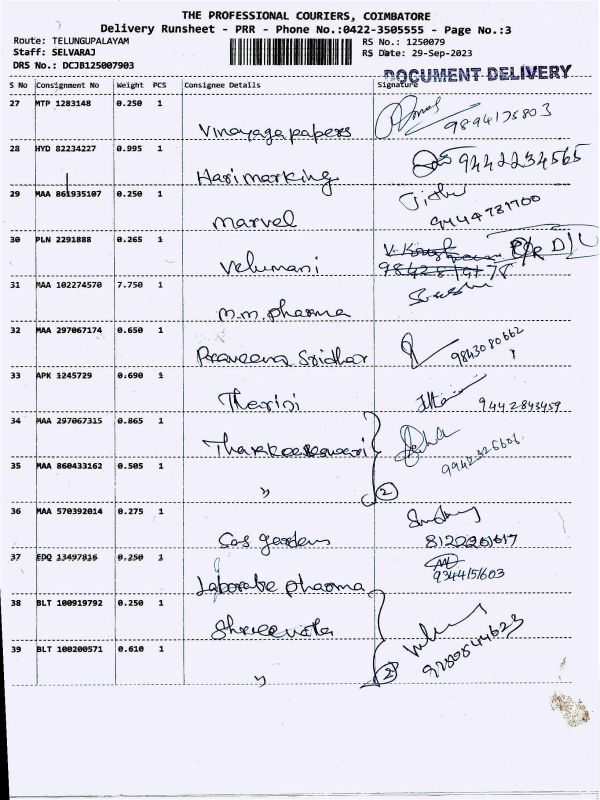 THE PROFESSIONAL COURIERS, COIMBATORE
Delivery Runsheet - PRR - Phone No.:0422-3505555 - Page No.:3
Route: TELUNGUPALAYAM
RS No.: 1250079
Staff: SELVARAJ
RS Date: 29-Sep-2023
DRS No.: DCJB125007903
DOCUMENT DELIVERY
S No Consignment No Weight PCS Consignee Details Signature
27 MTP 1283148 0.250 1
Vinayaga papers 9894175803
28 HYD 82234227 0.995 1
Hari marking 9442234565
29 MAA 861935107 0.250 1
Marvel
30 PLN 2291888 0.265 1
Velumani
31 MAA 102274570 7.750 1
m.m. pharma
32 MAA 297067174 0.650 1
Praveena Sridhar 9843080662
33 APK 1245729 0.690 1
Tharini 9442843459
34 MAA 297067315 0.865 1
9942326606
35 MAA 860433162 0.505 1
" 2
36 MAA 570392014 0.275 1
Sas gardens 8122261617
37 EDQ 13497816 0.250 1
Laborate pharma 9344151603
38 BLT 100919792 0.250 1
39 BLT 100200571 0.610 1
" 2